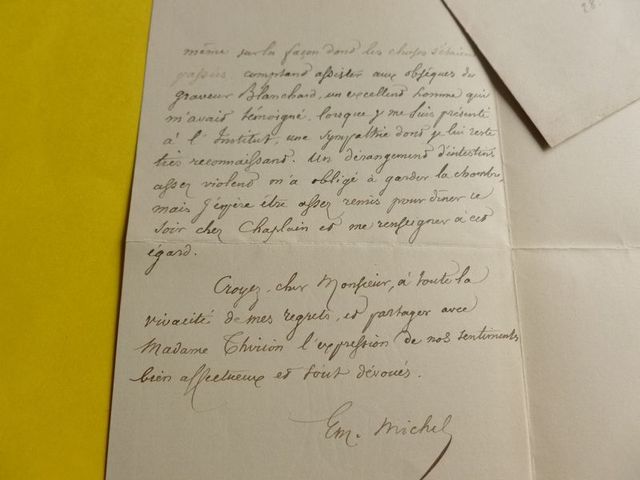 même sur la façon dont les choses s'étaient
passées, comptant assister aux obsèques du
graveur Blanchard, un excellent homme qui
m'avait témoigné, lorsque je me suis présenté
à l'Institut, une sympathie dont je lui reste
très reconnaissant. Un dérangement d'intestins
assez violent m'a obligé à garder la chambre,
mais j'espère être assez remis pour dîner ce
soir chez Chaplain et me renseigner à cet
égard.
Croyez, cher Monsieur, à toute la
vivacité de mes regrets, et partager avec
Madame Thirion l'expression de nos sentiments
bien affectueux et tout dévoués.
Em. Michel
28.